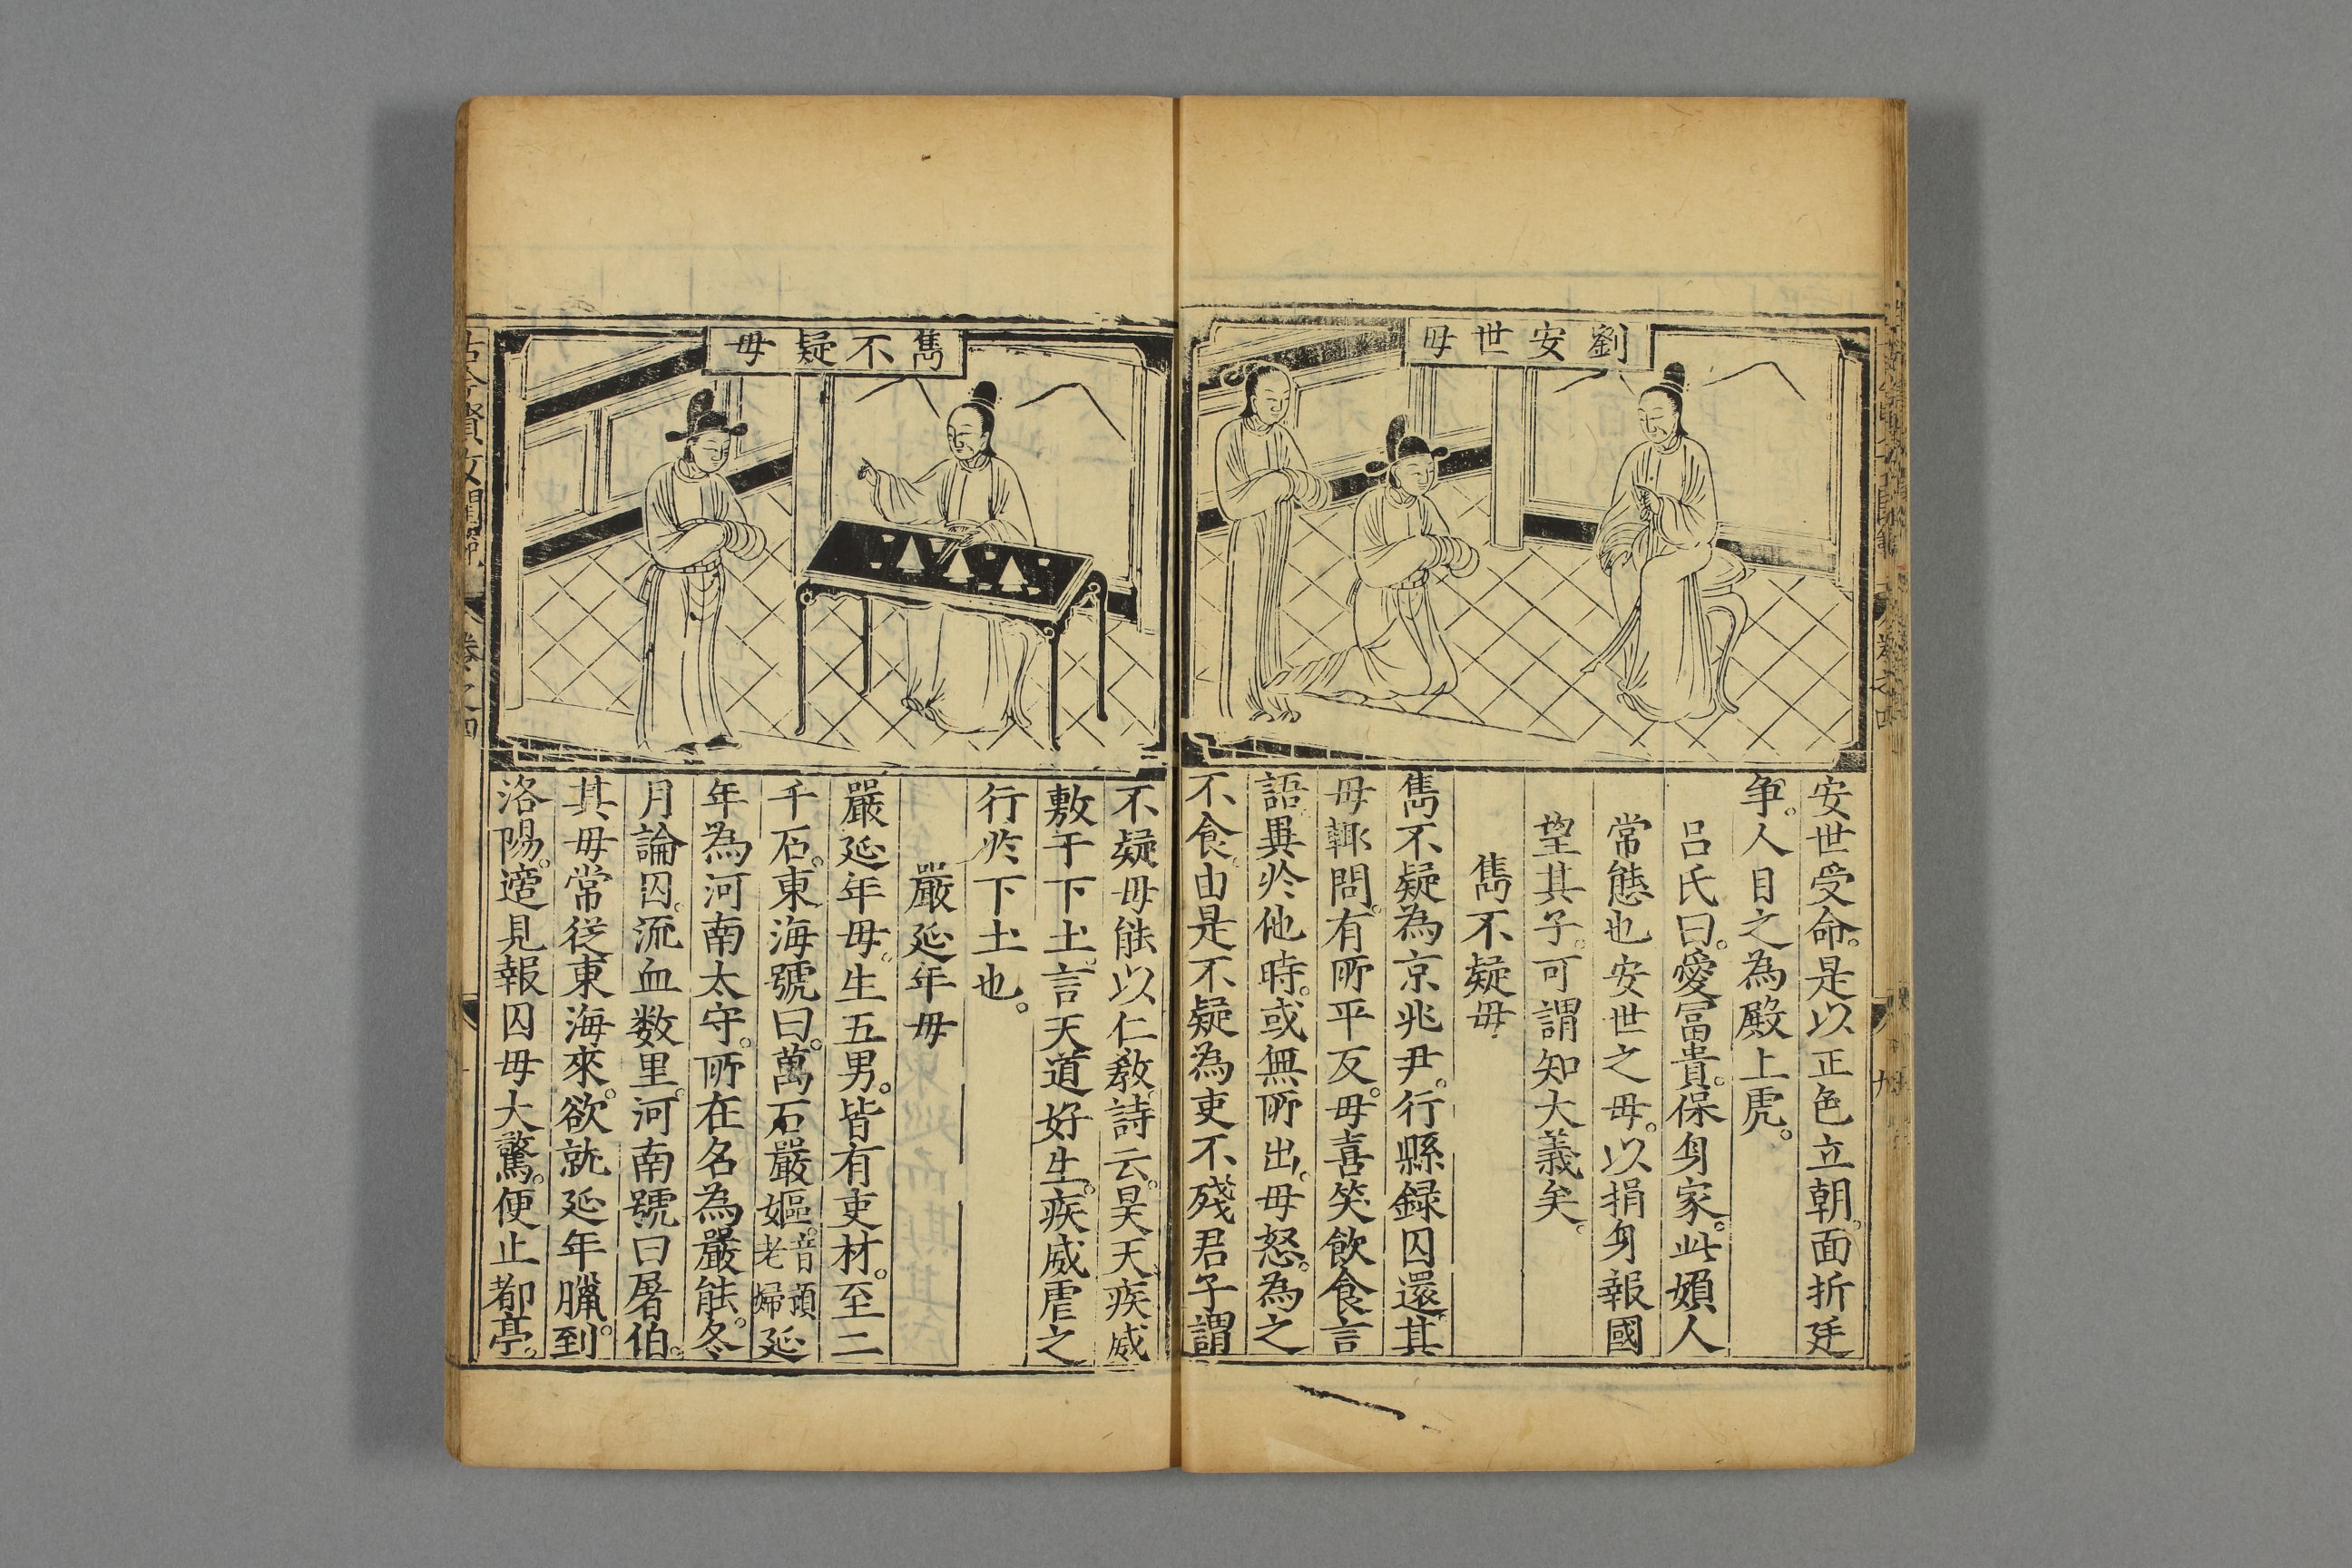 劉安世母
安世受命。是以正色立朝。面折廷
争。人目之為殿上虎。
呂氏曰。愛冨貴。保身家。此婦人
常態也安世之母。以捐身報國
望其子。可謂知大義矣。
雋不疑母
雋不疑為京兆尹。行縣録囚還。其
母輙問。有所平反。母喜笑飲食言
語異於他時。或無所出。母怒。為之
不食。由是不疑為吏不殘君子謂
雋不疑母
不疑母能以仁教。詩云。昊天疾威
敷于下土。言天道好生。疾威虐之
行於下土也。
嚴延年母
嚴延年母。生五男。皆有吏材。至二
千石。東海號曰。萬石嚴嫗。音頭老婦延
年為河南太守。所在名為嚴能。冬
月論囚。流血数里。河南號曰屠伯。
其母常従東海來。欲就延年臘。到
洛陽。適見報囚母大驚。便止都亭。
卷之四